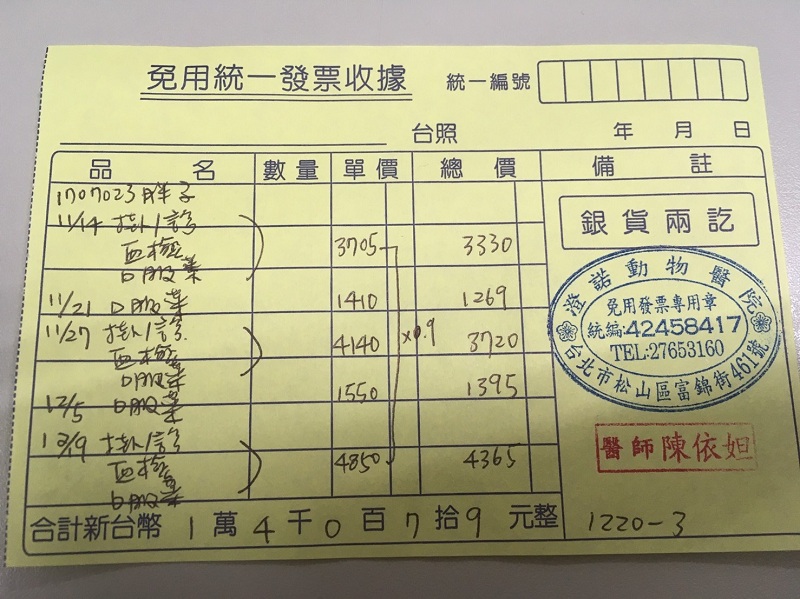 免用統一發票收據
統一編號
台照 年 月 日
品 名 數量 單價 總價 備註
1707023 胖子
11/14 掛/診
血檢 3705 3330
口服藥
11/21 口服藥 1410 1269
11/27 掛/診
血檢 4140 ×0.9 3720
口服藥
12/5 口服藥 1550 1395
12/19 掛/診
血檢 4850 4365
口服藥
合計新台幣 1 萬 4 千 0 百 7 拾 9 元整
銀貨兩訖
澄諾動物醫院
免用發票專用章
統編:42458417
TEL:27653160
台北市松山區富錦街461號
醫師陳依妲
1220-3